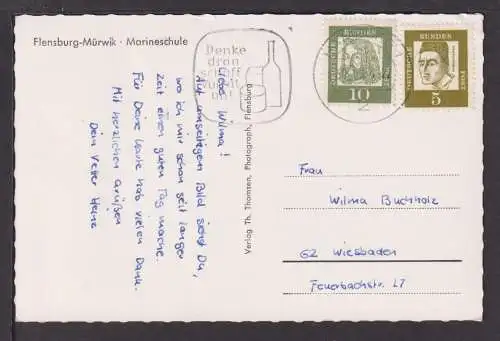 Flensburg-Mürwik · Marineschule
Denke
dran
schaff
Vorrat
an!
DEUTSCHE BUNDES POST
10
DEUTSCHE BUNDES POST
5
Liebe Wilma!
Auf umseitigem Bild siehst Du,
wo ich mir schon seit langer
Zeit einen guten Tag mache.
Für Deine Karte hab vielen Dank.
Mit herzlichen Grüßen
Dein Vetter Heine
Verlag Th. Thomsen, Photograph, Flensburg
Frau
Wilma Buchholz
62 Wiesbaden
Feuerbachstr. 27